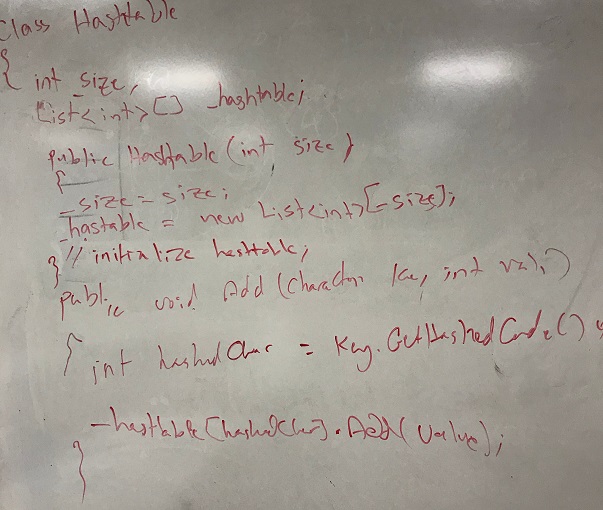 Class Hashtable
{
int _size,
List<int>[] _hashtable;
public Hashtable (int size)
{
_size = size;
_hastable = new List<int>[_size];
// initialize hashtable;
}
public void Add (Character key, int val)
{ int hashedChar = Key.GetHashedCode()
_hashtable[hashedChar].Add(value);
}